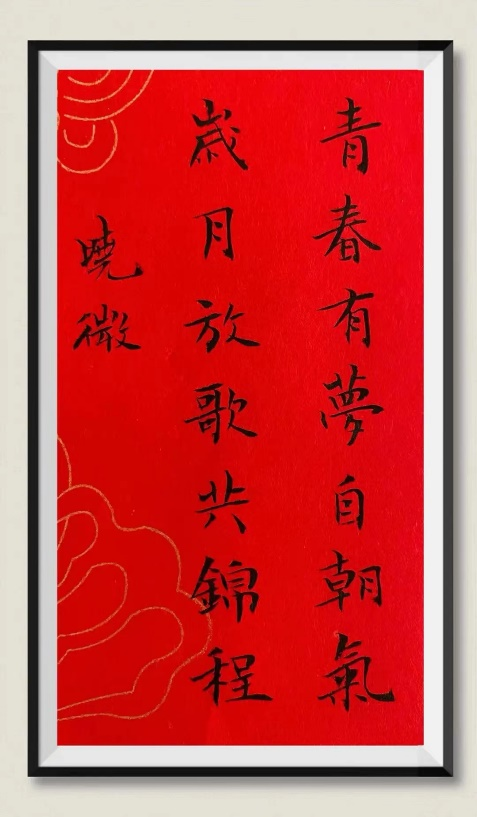 青春有夢自朝氣
歲月放歌共錦程
曉微